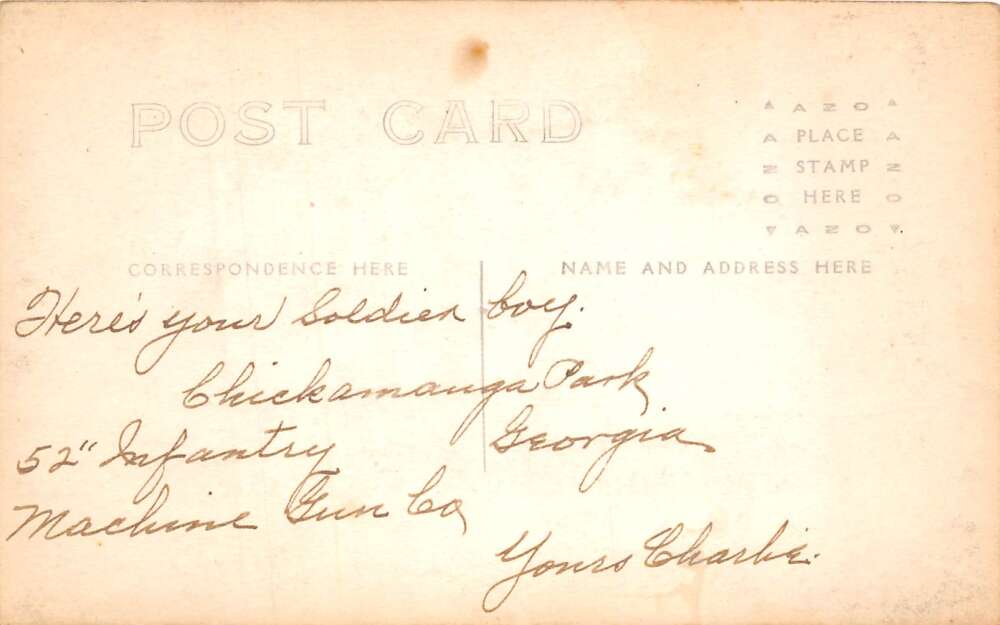 POST CARD
▲ A Z O ▲
A PLACE A
Z STAMP Z
O HERE O
▼ A Z O ▼
CORRESPONDENCE HERE
NAME AND ADDRESS HERE
Here's your Soldier boy.
Chickamauga Park
Georgia
52" Infantry
Machine Gun Co
Yours Charlie.